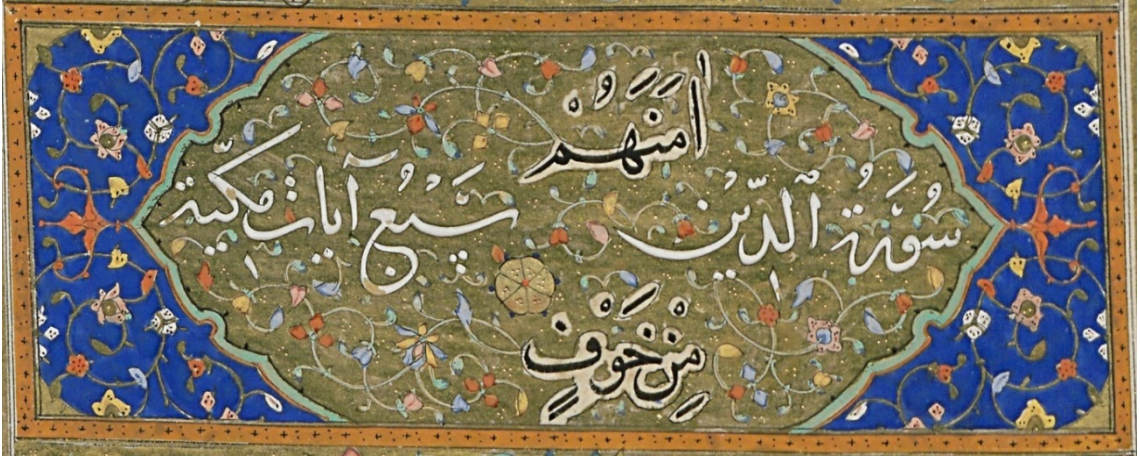 اٰمَنَهُمْ
سُورَةُ الدِّيْنِ سَبْعُ آيات مكّيّة
مِنْ خَوْفٍ